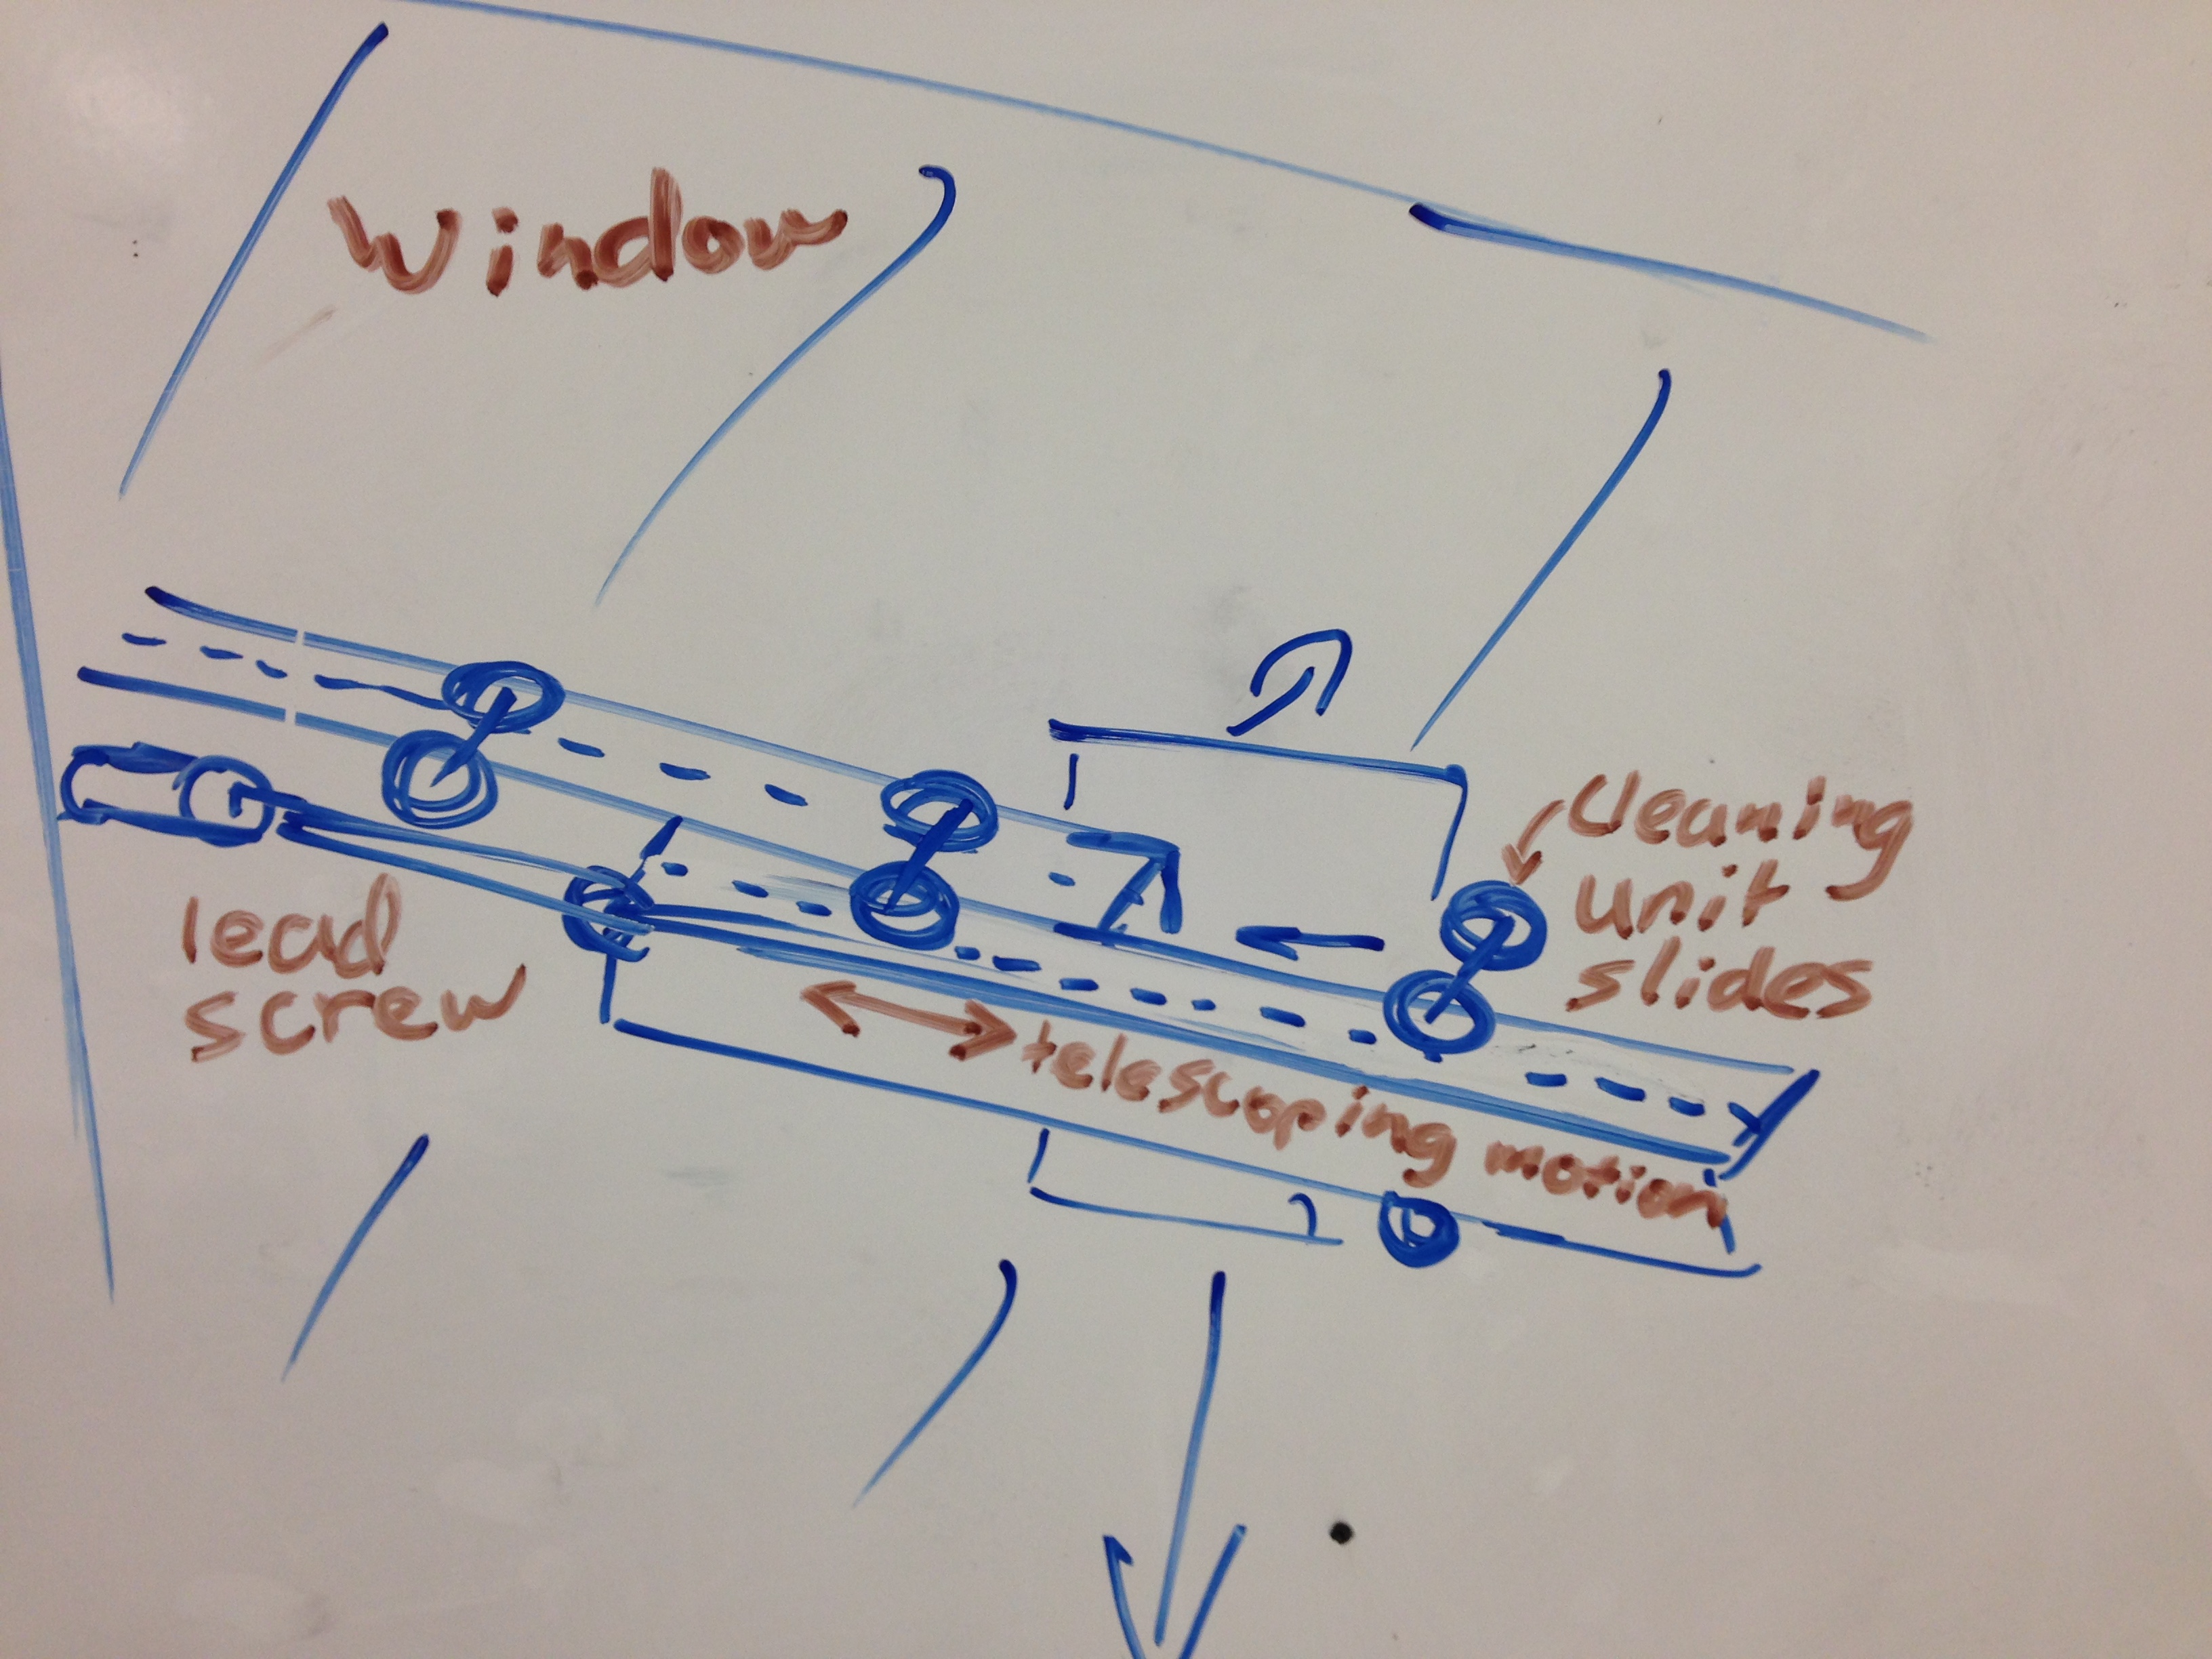 Window
cleaning
unit
slides
lead
screw
telescoping motion